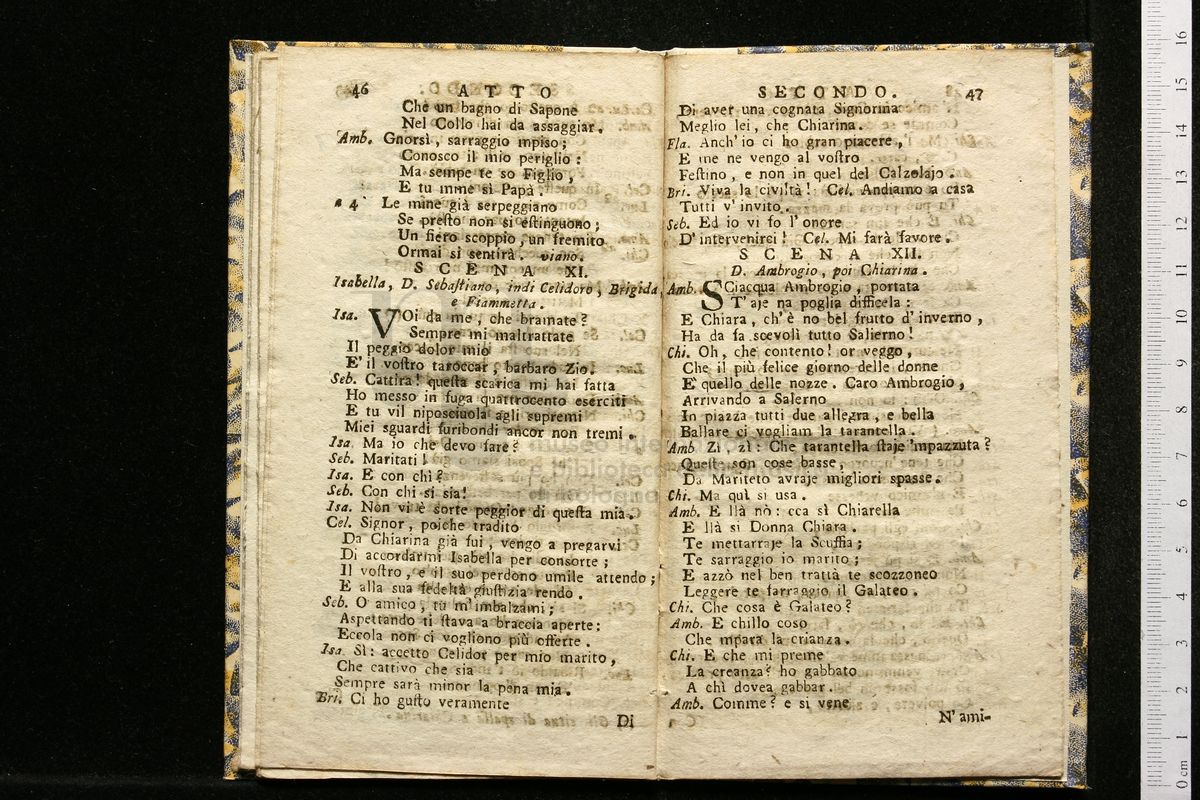 46 ATTO
Che un bagno di Sapone
Nel Collo hai da assaggiar.
Amb. Gnorsì, sarraggio mpiso;
Conosco il mio periglio:
Ma sempe te so Figlio,
E tu mme sì Papà.
a 4 Le mine già serpeggiano
Se preſto non si eſtinguono;
Un fiero scoppio, un fremito
Ormai si sentirà. viano.
SCENA XI.
Isabella, D. Sebaſtiano, indi Celidoro, Brigida,
e Fiammetta.
Isa. VOi da me, che bramate?
Sempre mi maltrattate
Il peggio dolor mio
E' il voſtro taroccar, barbaro Zio.
Seb. Cattira! queſta scarica mi hai fatta
Ho messo in fuga quattrocento eserciti
E tu vil niposciuola agli supremi
Miei sguardi furibondi ancor non tremi.
Isa. Ma io che devo fare?
Seb. Maritati!
Isa. E con chi?
Seb. Con chi si sia!
Isa. Non vi è sorte peggior di queſta mia.
Cel. Signor, poiche tradito
Da Chiarina già fui, vengo a pregarvi
Di accordarmi Isabella per consorte;
Il voſtro, e il suo perdono umile attendo;
E alla sua fedeltà giuſtizia rendo.
Seb. O amico, tu m'imbalzami;
Aspettando ti ſtava a braccia aperte:
Eccola non ci vogliono più offerte.
Isa. Sì: accetto Celidor per mio marito,
Che cattivo che sia
Sempre sarà minor la pena mia.
Bri. Ci ho guſto veramente
Di
SECONDO. 47
Di aver una cognata Signorina
Meglio lei, che Chiarina.
Fla. Anch'io ci ho gran piacere,
E me ne vengo al voſtro
Feſtino, e non in quel del Calzolajo.
Bri. Viva la civiltà! Cel. Andiamo a casa
Tutti v'invito.
Seb. Ed io vi fo l'onore
D'intervenirci! Cel. Mi farà favore.
SCENA XII.
D. Ambrogio, poi Chiarina.
Amb. SCiacqua Ambrogio, portata
T'aje na poglia difficela:
E Chiara, ch'è no bel frutto d'inverno,
Ha da fa scevoli tutto Salierno!
Chi. Oh, che contento! or veggo,
Che il più felice giorno delle donne
E' quello delle nozze. Caro Ambrogio,
Arrivando a Salerno
In piazza tutti due allegra, e bella
Ballare ci vogliam la tarantella.
Amb Zi, zì: Che tarantella ſtaje 'mpazzuta?
Queſt' son cose basse,
Da Mariteto avraje migliori spasse.
Chi. Ma quì si usa.
Amb. E llà nò: cca sì Chiarella
E llà si Donna Chiara.
Te mettarraje la Scuffia;
Te sarraggio io marito;
E azzò nel ben trattà te scozzoneo
Leggere te farraggio il Galateo.
Chi. Che cosa è Galateo?
Amb. E chillo coso
Che mpara la crianza.
Chi. E che mi preme
La creanza? ho gabbato
A chì dovea gabbar.
Amb. Comme? e si vene
N'ami-
0 cm 1 2 3 4 5 6 7 8 9 10 11 12 13 14 15 16